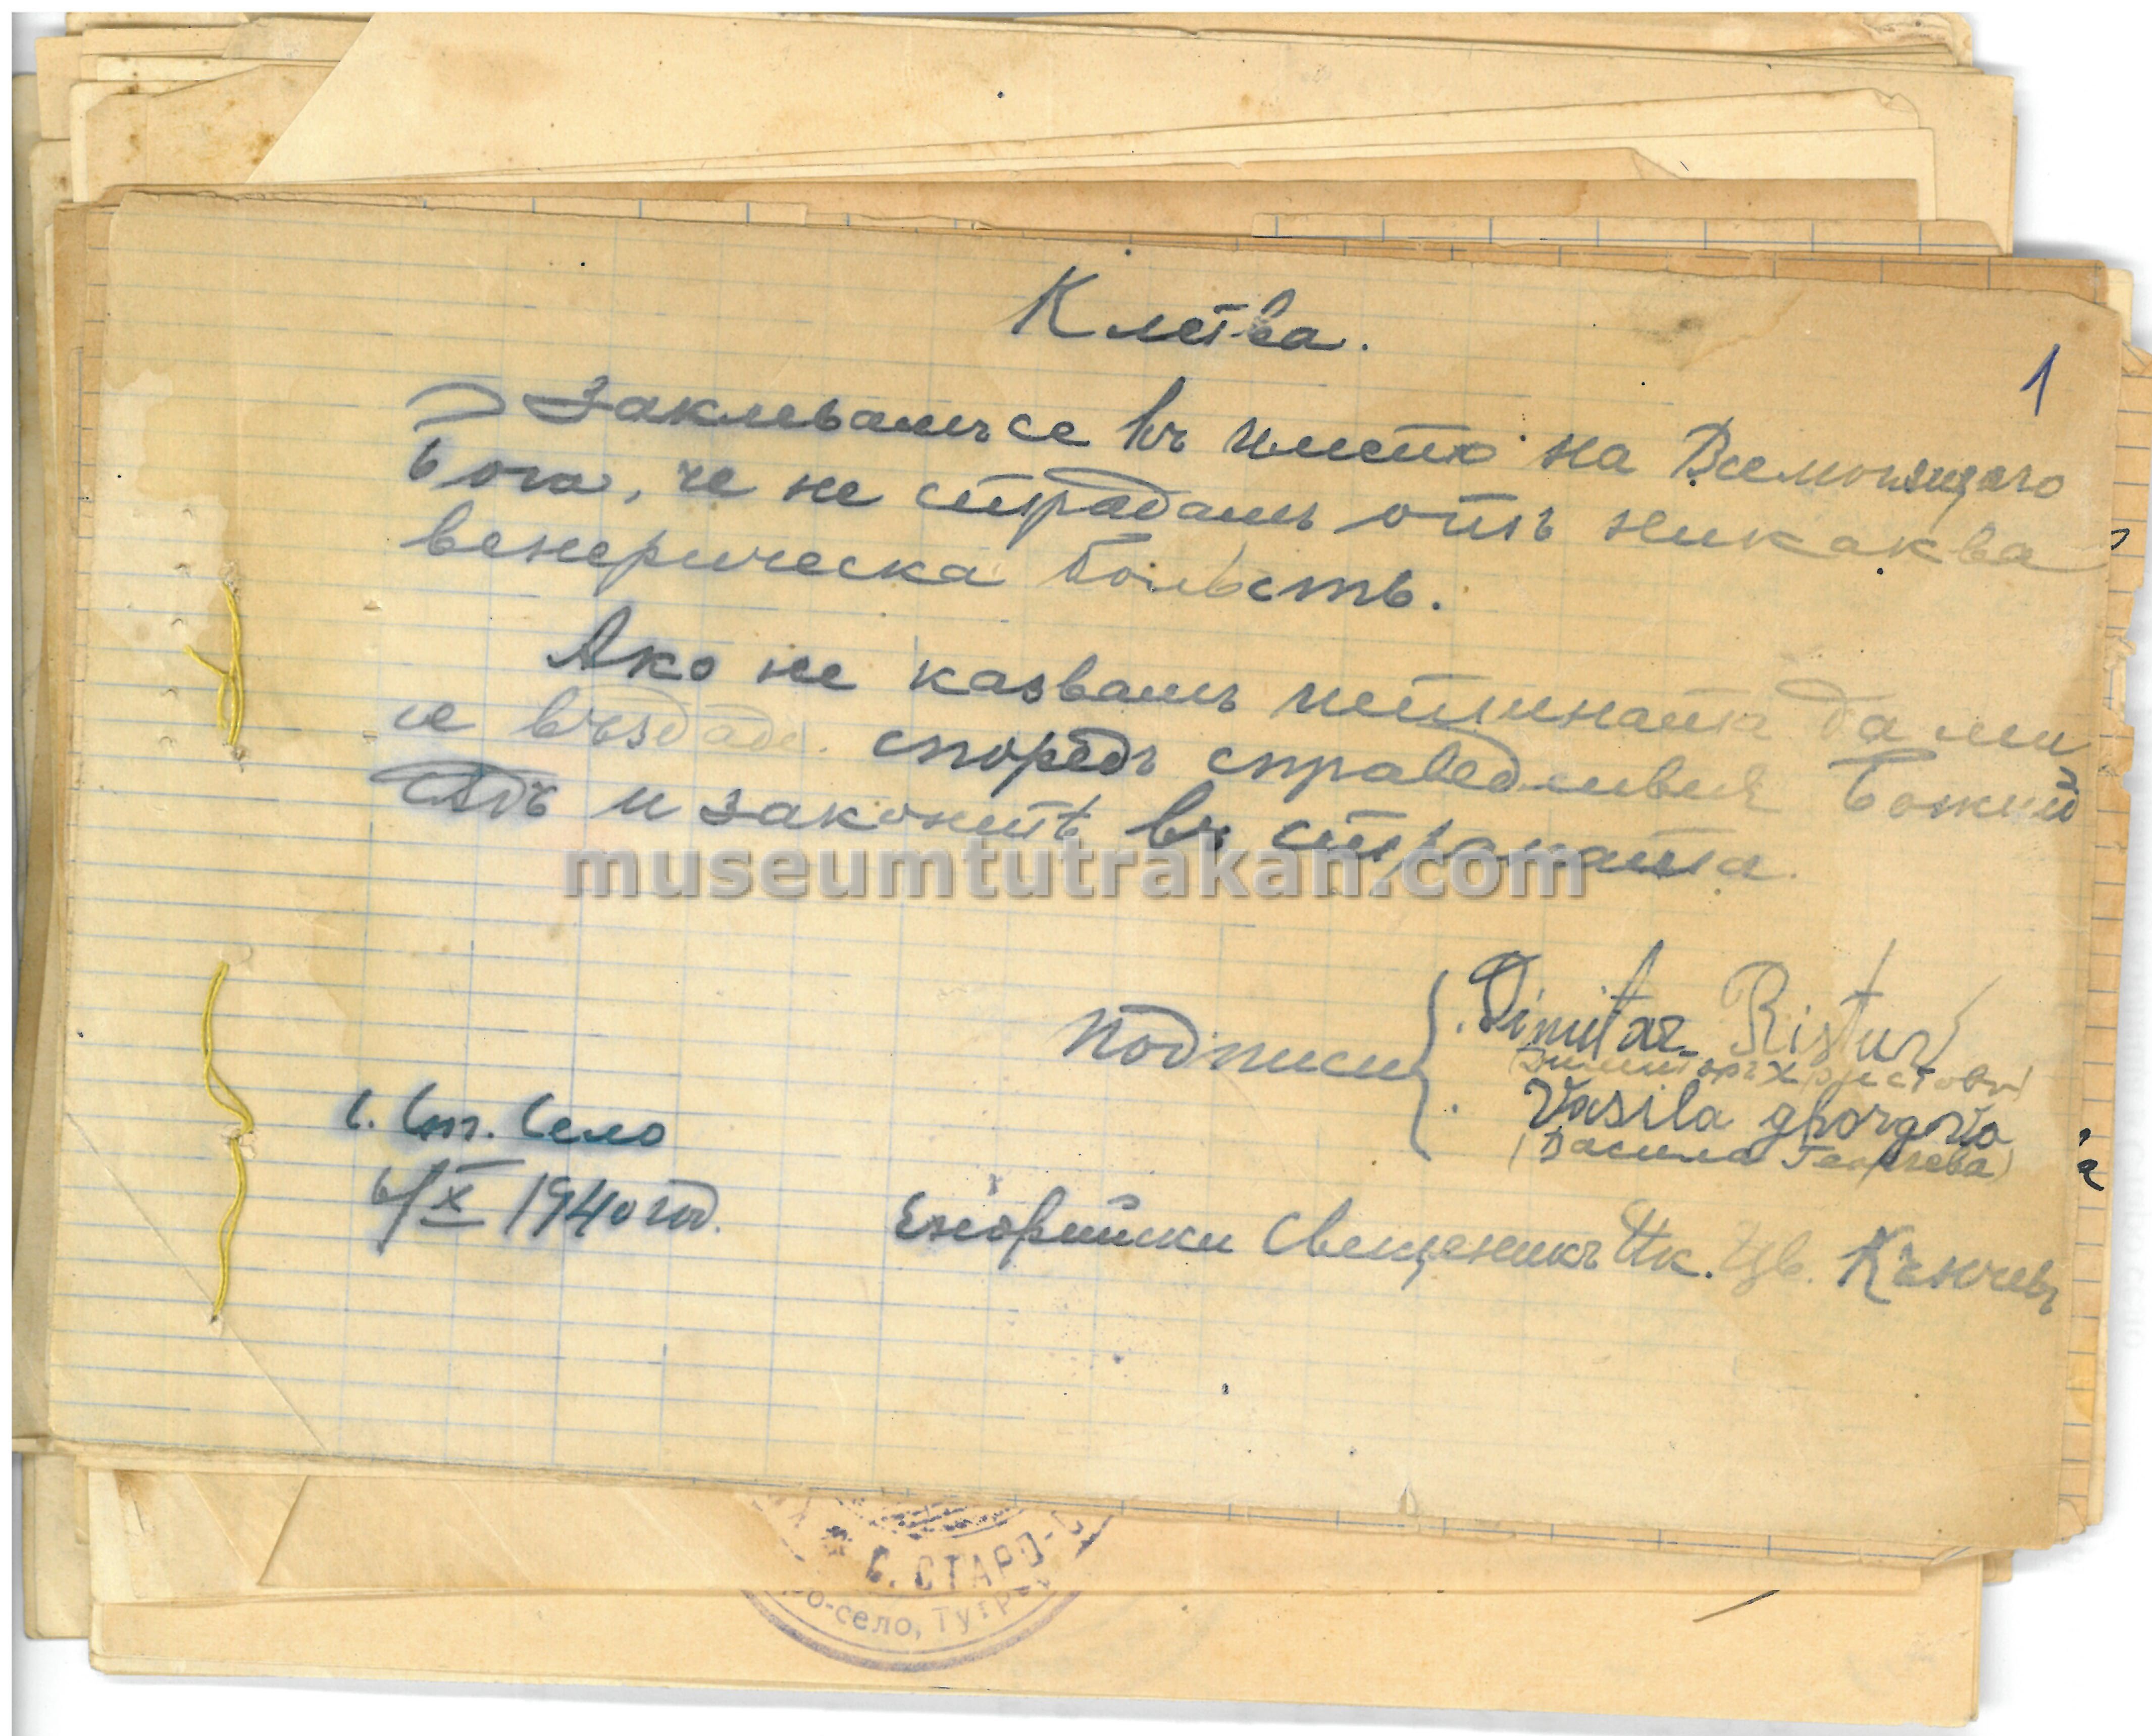 Клетва.
1
Заклевамъ се въ името на Всемогящаго
Бога, че не страдамъ отъ никаква
венерическа болѣсть.
Ако не казвамъ истината да ми
се въздаде споредъ справедливия Божий
сѫдъ и законитѣ въ страната.
museumtutrakan.com
Подписи
Dimitar Ristuv
(Димитъръ Христовъ)
Vasila ghorgova
(Василa Георгева)
с. Ст. Село
6/X 1940 год.
Енорийски Свещеникъ Ик. Цв. Кънчевъ
С. СТАРО-С
о-село, Тутра